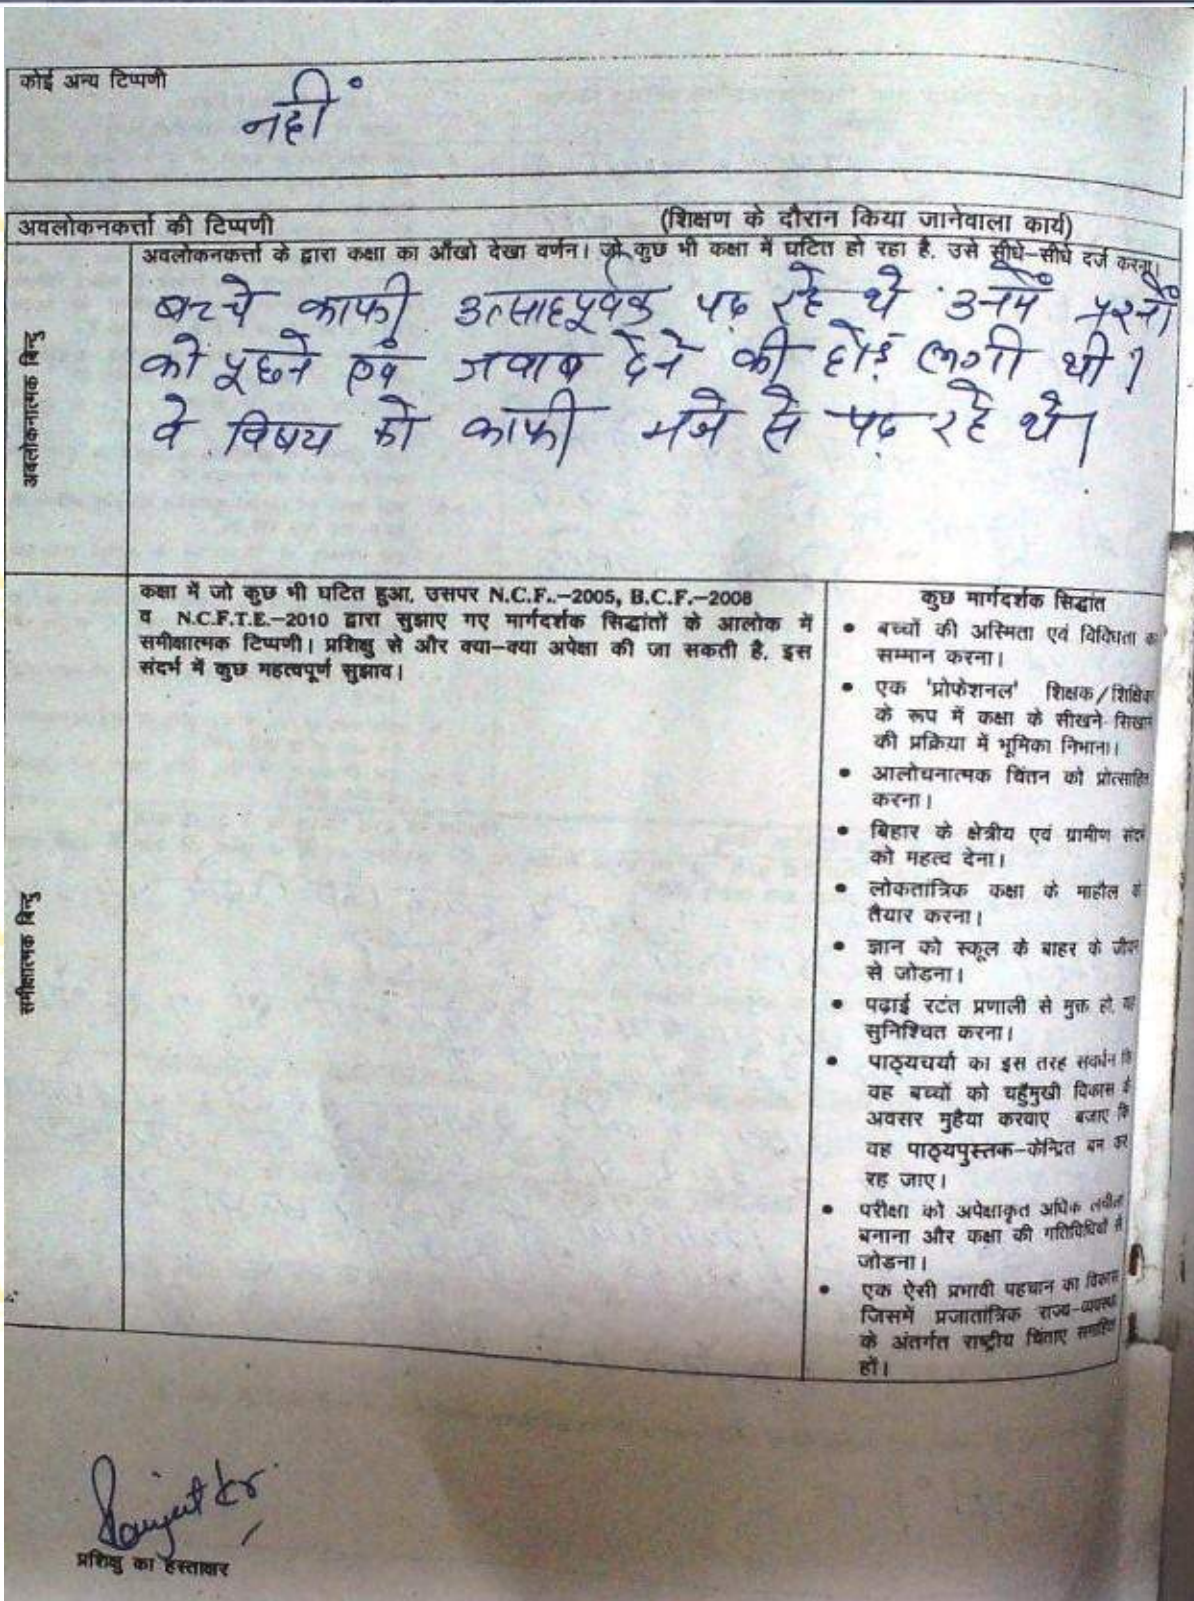 कोई अन्य टिप्पणी
नहीं
अवलोकनकर्त्ता की टिप्पणी (शिक्षण के दौरान किया जानेवाला कार्य)
अवलोकनकर्त्ता के द्वारा कक्षा का आँखो देखा वर्णन। जो कुछ भी कक्षा में घटित हो रहा है, उसे सीधे-सीधे दर्ज करना।
अवलोकनात्मक बिन्दु
बच्चे काफी उत्साहपूर्वक पढ़ रहे थे उनमें प्रश्नों
को पूछने एवं जवाब देने की होड़ लगी थी।
वे विषय को काफी मजे से पढ़ रहे थे।
समीक्षात्मक बिन्दु
कक्षा में जो कुछ भी घटित हुआ, उसपर N.C.F..-2005, B.C.F.-2008
व N.C.F.T.E.-2010 द्वारा सुझाए गए मार्गदर्शक सिद्धांतों के आलोक में
समीक्षात्मक टिप्पणी। प्रशिक्षु से और क्या-क्या अपेक्षा की जा सकती है, इस
संदर्भ में कुछ महत्वपूर्ण सुझाव।
कुछ मार्गदर्शक सिद्धांत
• बच्चों की अस्मिता एवं विविधता
सम्मान करना।
• एक 'प्रोफेशनल' शिक्षक/
के रूप में कक्षा के सीखने
की प्रक्रिया में भूमिका निभाना।
• आलोचनात्मक चिंतन को
करना।
• बिहार के क्षेत्रीय एवं ग्रामीण
को महत्व देना।
• लोकतांत्रिक कक्षा के माहौल
तैयार करना।
• ज्ञान को स्कूल के बाहर के
से जोडना।
• पढ़ाई रटंत प्रणाली से मुक्त हो,
सुनिश्चित करना।
• पाठ्यचर्या का इस तरह
वह बच्चों को चहुँमुखी विकास
अवसर मुहैया करवाए बजाए
वह पाठ्यपुस्तक-केन्द्रित बन कर
रह जाए।
• परीक्षा को अपेक्षाकृत अधिक
बनाना और कक्षा की गतिविधियों से
जोडना।
• एक ऐसी प्रभावी पहचान का विकास
जिसमें प्रजातांत्रिक राज्य-व्यवस्था
के अंतर्गत राष्ट्रीय चिंताए
हों।
प्रशिक्षु का हस्ताक्षर